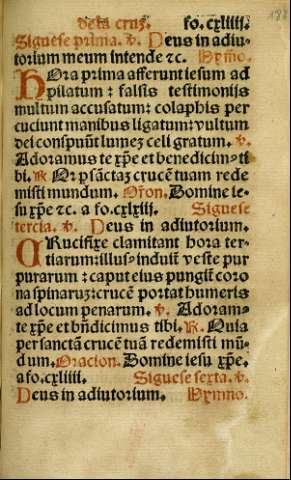 de la cruz. fo. cxliiii.
Siguese prima. v. Deus in adiu-
torium meum intende ⁊c. Hymno.
HOra prima afferunt iesum ad
pilatum: falsis testimonijs
multum accusatum: colaphis per
cuciunt manibus ligatum: vultum
dei conspuūt lumez celi gratum. v.
Adoramus te xp̄e et benedicim⁹ ti
bi. R. Qr p sāctaz crucē tuam rede
misti mundum. Oron. Domine ie-
su xp̄e ⁊c. a fo. cxlxiij. Siguese
tercia. v. Deus in adiutorium.
CRucifixe clamitant hora ter-
tiarum: illus⁹ induiť veste pur
purarum: caput eius pungiť coro
na spinaruz: crucē portat humeris
ad locum penarum. v. Adoram⁹
te xp̄e et bn̄dicimus tibi. R. Quia
per sanctā crucē tuā redemisti mū-
dum. Oracion. Domine iesu xp̄e.
a fo. cxliiii. Siguese sexta. v.
Deus in adiutorium. Hymno.